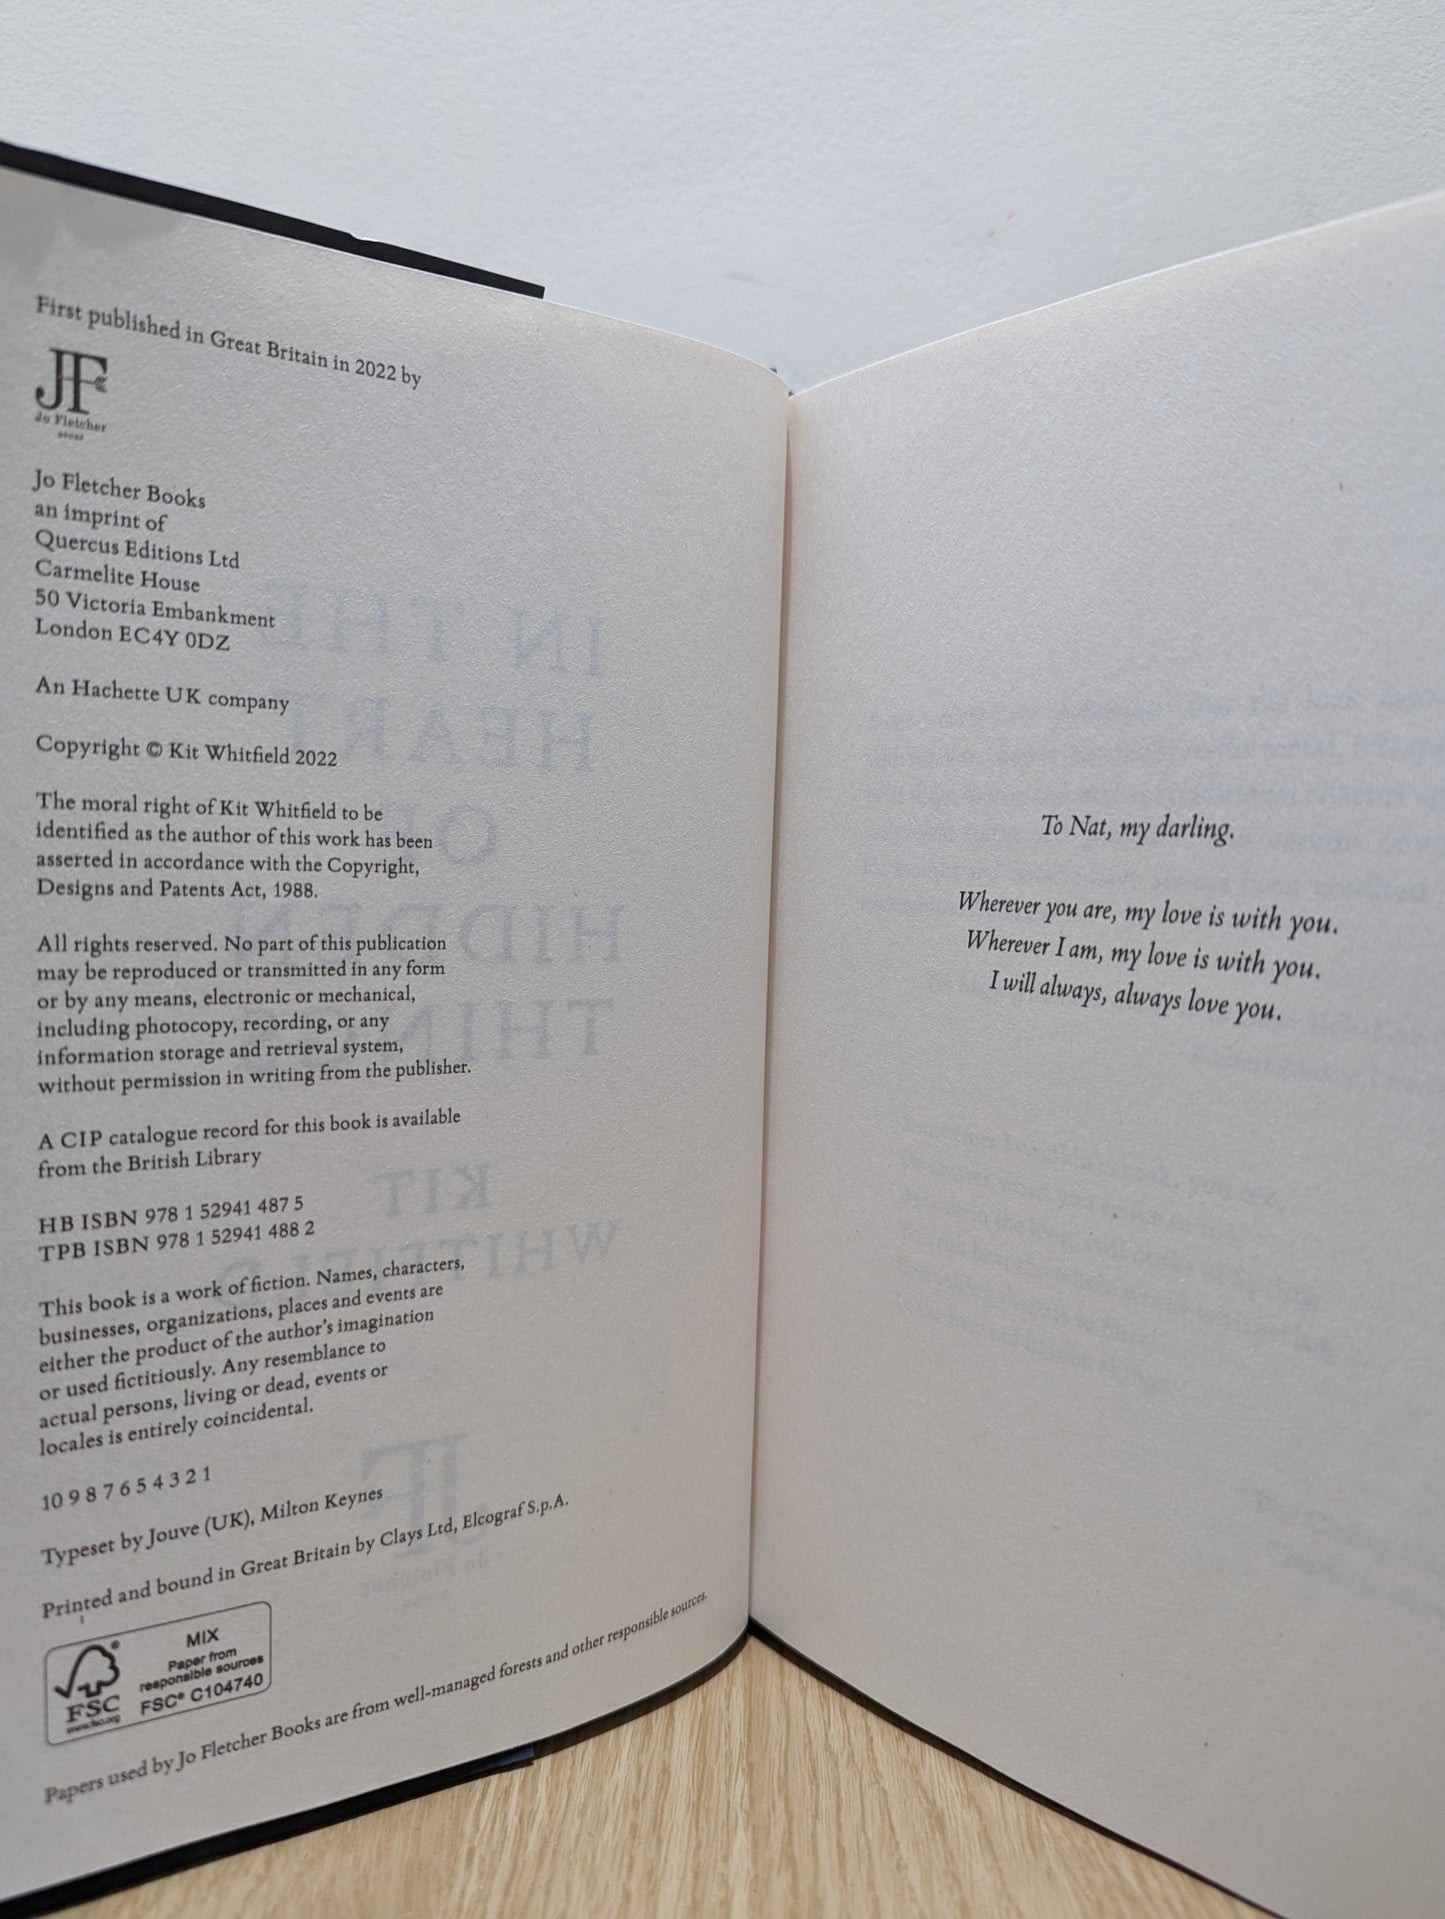 First published in Great Britain in 2022 by
JF
Jo Fletcher
BOOKS
Jo Fletcher Books
an imprint of
Quercus Editions Ltd
Carmelite House
50 Victoria Embankment
London EC4Y 0DZ
An Hachette UK company
Copyright © Kit Whitfield 2022
The moral right of Kit Whitfield to be
identified as the author of this work has been
asserted in accordance with the Copyright,
Designs and Patents Act, 1988.
All rights reserved. No part of this publication
may be reproduced or transmitted in any form
or by any means, electronic or mechanical,
including photocopy, recording, or any
information storage and retrieval system,
without permission in writing from the publisher.
A CIP catalogue record for this book is available
from the British Library
HB ISBN 978 1 52941 487 5
TPB ISBN 978 1 52941 488 2
This book is a work of fiction. Names, characters,
businesses, organizations, places and events are
either the product of the author's imagination
or used fictitiously. Any resemblance to
actual persons, living or dead, events or
locales is entirely coincidental.
10 9 8 7 6 5 4 3 2 1
Typeset by Jouve (UK), Milton Keynes
Printed and bound in Great Britain by Clays Ltd, Elcograf S.p.A.
FSC
www.fsc.org
MIX
Paper from
responsible sources
FSC® C104740
Papers used by Jo Fletcher Books are from well-managed forests and other responsible sources.
To Nat, my darling.
Wherever you are, my love is with you.
Wherever I am, my love is with you.
I will always, always love you.